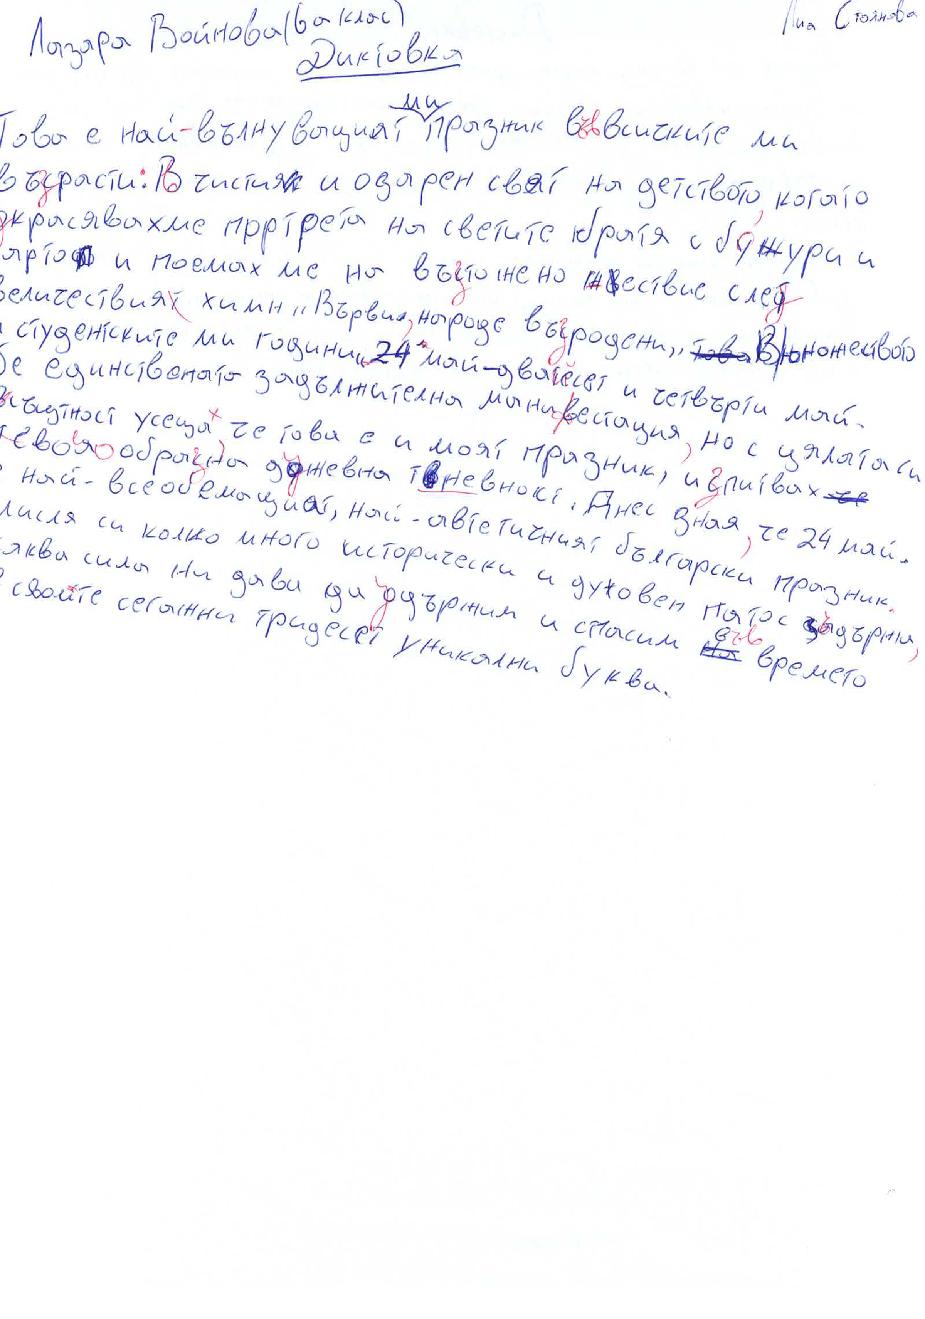 Лазара Войнова (6а клас)
Лиа Стоянова
Диктовка
ми
Това е най-вълнуващият празник във всичките ми
възрасти: В чистия и озарен свят на детството, когато
украсявахме портрета на светите братя с божури и
и поемахме на възтожено шествие след
величествият химн „Върви, народе възродени„, това В юношеството
и студентските ми години „24 май-двайесет и четвърти май.
бе единствената задължителна манифестация, но с цялата си
същност усеща, че това е и моят празник, изпитвах че
своя образна душевна тъневност. Днес зная, че 24 май.
е най-всеобемащият, най-автетичният български празник.
мисля си колко много исторически и духовен патос задържа,
каква сила ни дава да удържим и спасим на във времето
свойте сегашни тридесет уникални букви.